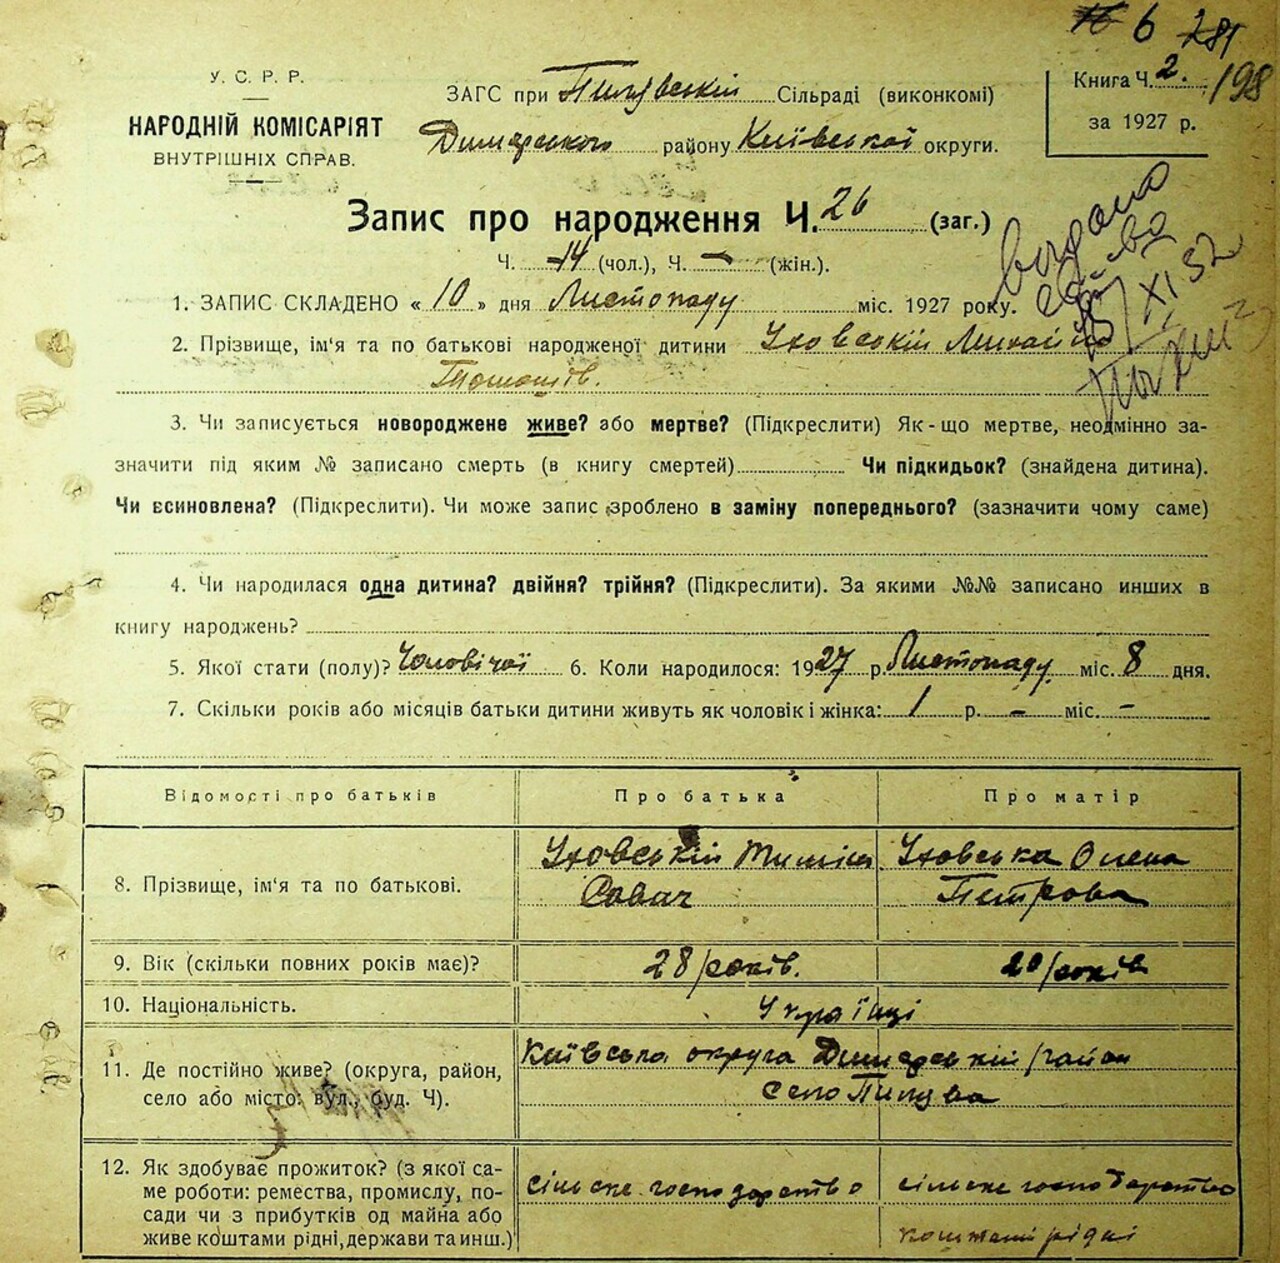 6 281
У. С. Р. Р.
НАРОДНІЙ КОМІСАРІЯТ
ВНУТРІШНІХ СПРАВ.
ЗАГС при Пилявській Сільраді (виконкомі)
Димерського району Київської округи.
Книга Ч. 2. 198
за 1927 р.
Запис про народження Ч. 26 (заг.)
Ч. 14 (чол.), Ч. – (жін.).
видано
XI 52
1. ЗАПИС СКЛАДЕНО « 10 » дня Листопаду міс. 1927 року.
2. Прізвище, ім'я та по батькові народженої дитини Уховській Михайло
3. Чи записується новороджене живе? або мертве? (Підкреслити) Як-що мертве, неодмінно за-
значити під яким № записано смерть (в книгу смертей) Чи підкидьок? (знайдена дитина).
Чи всиновлена? (Підкреслити). Чи може запис зроблено в заміну попереднього? (зазначити чому саме)
4. Чи народилася одна дитина? двійня? трійня? (Підкреслити). За якими №№ записано инших в
книгу народжень?
5. Якої стати (полу)? Чоловічої 6. Коли народилося: 1927 р. Листопаду міс. 8 дня.
7. Скільки років або місяців батьки дитини живуть як чоловік і жінка: 1 р. – міс. –
Відомості про батьків
Про батька
Про матір
8. Прізвище, ім'я та по батькові.
Уховській Тиміш
Савич
Уховська Олена
Петрова
9. Вік (скільки повних років має)?
28 років.
20 років
10. Національність.
Українці
11. Де постійно живе? (округа, район,
село або місто: вул., буд. Ч).
Київська округа Димерській район
село Пилява
12. Як здобуває прожиток? (з якої са-
ме роботи: ремества, промислу, по-
сади чи з прибутків од майна або
живе коштами рідні, держави та инш.)
сільське господарство
сільське господарство
коштами рідні